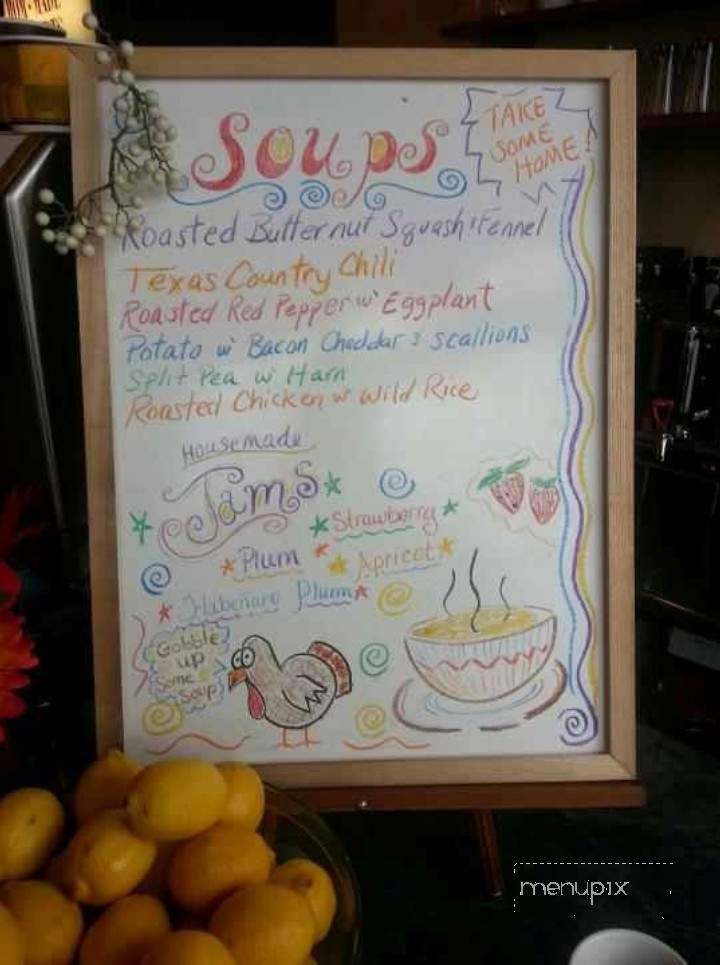 Soups
TAKE
SOME
HOME!
Roasted Butternut Squash & Fennel
Texas Country Chili
Roasted Red Pepper w/ Eggplant
Potato w/ Bacon Cheddar & scallions
Split Pea w/ Ham
Roasted Chicken w/ Wild Rice
Housemade
Jams
Strawberry
Plum
Apricot
Habenaro Plum
Gobble
up
Some
Soup
menupix